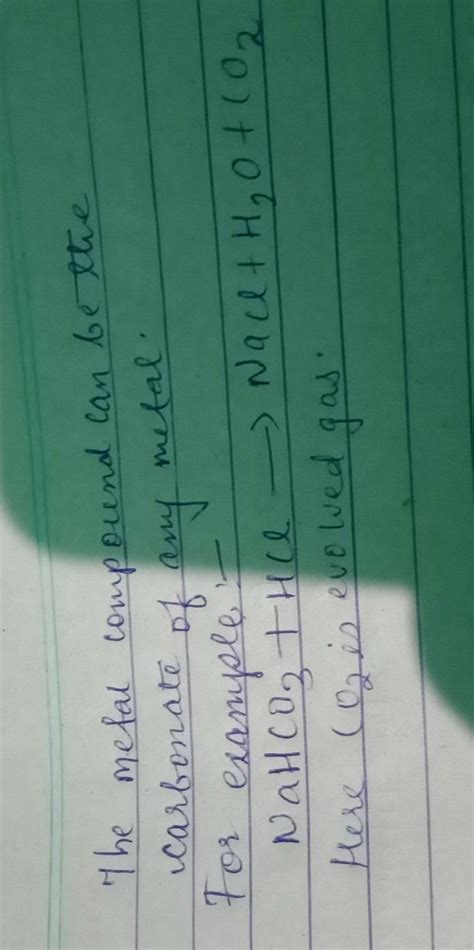 The metal compound can be the
carbonate of any metal.
For example:-
NaHCO3 + HCl → NaCl + H2O + CO2
Here CO2 is evolved gas.